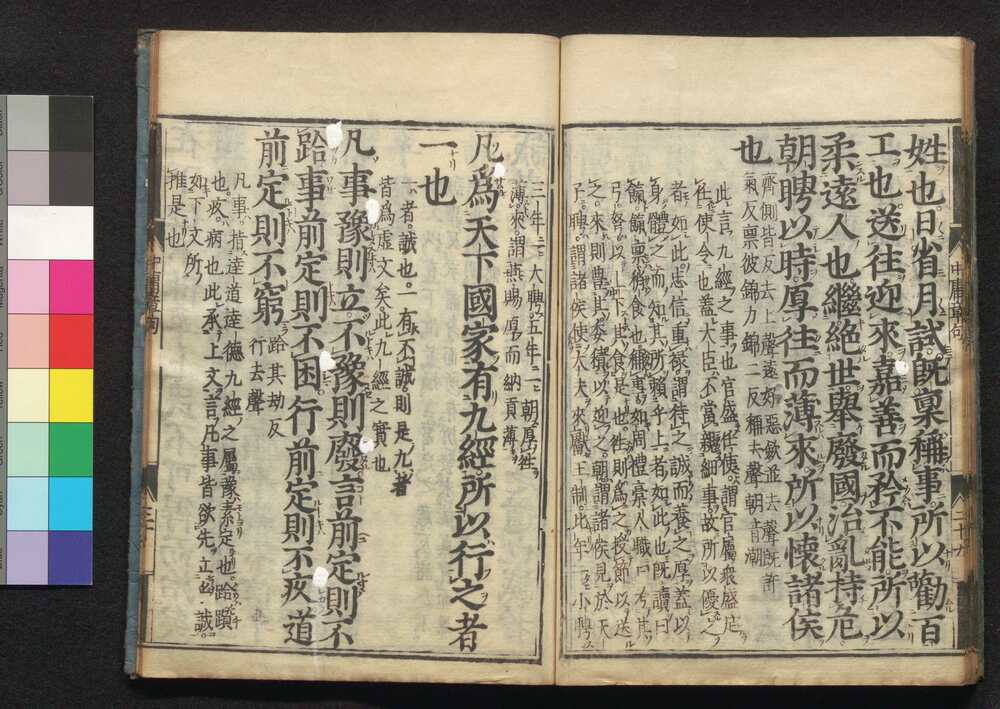 姓也日省月試既稟稱事所以勸百
工也送往迎來嘉善而矜不能所以
柔遠人也繼絕世舉廢國治亂持危
朝聘以時厚往而薄來所以懷諸侯
也
齊側皆反去上聲遠好惡斂並去聲既許
氣反稟彼錦力錦二反稱去聲朝音潮
此言九經之事也官盛任使謂官屬衆盛足
任使令也蓋大臣不當親細事故所以優之
者如此忠信重祿謂待之誠而養之厚蓋以
身體之而知其所賴乎上者如此也既讀曰
餼餼稟稍食也稱事如周禮稾人職曰考其
弓弩以上下其食是也往則爲之授節以送
之來則豊其委積以迎之朝謂諸侯見於天
子聘謂諸侯使大夫來獻王制比年一小聘
三年一大聘五年一朝厚往
薄來謂燕賜厚而納貢薄
凡爲天下國家有九經所以行之者
一也
一者誠也一有不誠則是九者
皆爲虚文矣此九經之實也
凡事豫則立不豫則廢言前定則不
跲事前定則不困行前定則不疚道
前定則不窮
跲其劫反
行去聲
凡事指達道達德九經之屬豫素定也跲躓
也疚病也此承上文言凡事皆欲先立乎誠
如下文所
推是也
中庸章句
二十六
中庸章句